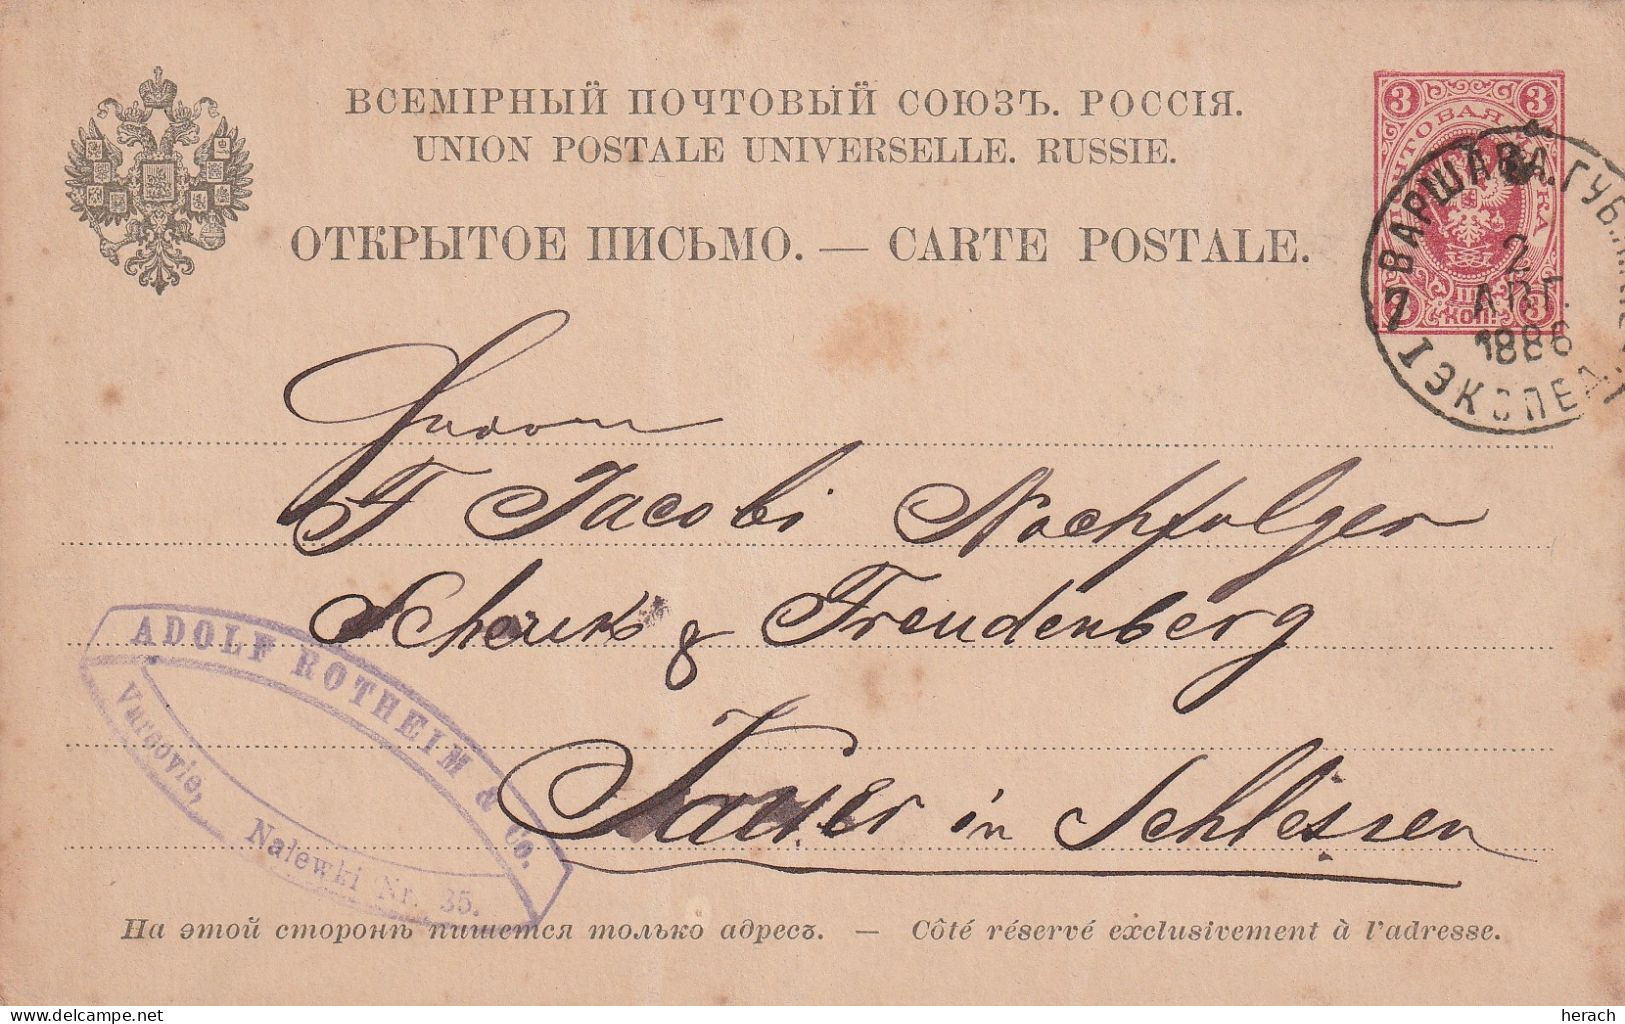 ВСЕМІРНЫЙ ПОЧТОВЫЙ СОЮЗЪ. РОССІЯ.
UNION POSTALE UNIVERSELLE. RUSSIE.
ОТКРЫТОЕ ПИСЬМО. — CARTE POSTALE.
3 3
ПОЧТОВАЯ МАРКА
3 КОП. 3
ВАРШАВА. ГУБ.
2
АПГ.
1886
7 I ЭКСПЕД.
F Jacobi Nachfolger
& Freudenberg
Jauer in Schlesien
ADOLF ROTHEIM & Co.
Varsovie, Nalewki Nr. 35.
На этой сторонѣ пишется только адресъ. — Côté réservé exclusivement à l'adresse.
delcampe.net
herach